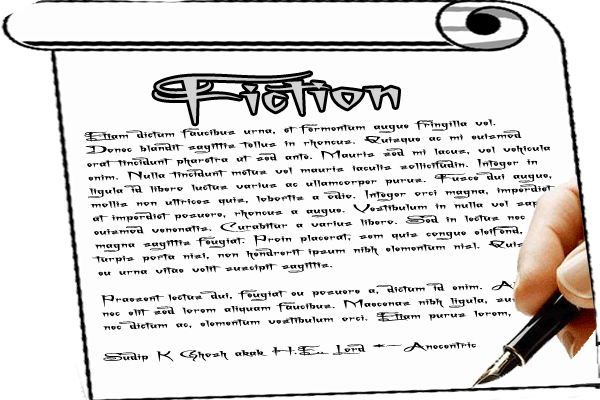 Fiction
Etiam dictum faucibus urna, et fermentum augue fringilla vel.
Donec blandit sagittis tellus in rhoncus. Quisque ac mi euismod
erat tincidunt pharetra ut sed ante. Mauris sed mi lacus, vel vehicula
enim. Nulla tincidunt metus vel mauris iaculis sollicitudin. Integer in
ligula id libero luctus varius ac ullamcorper purus. Fusce dui augue,
mollis non ultrices quis, lobortis a odio. Integer orci magna, imperdiet
at imperdiet posuere, rhoncus a augue. Vestibulum in nulla vel
euismod venenatis. Curabitur a varius libero. Sed in lectus nec
magna sagittis feugiat. Proin placerat, sem quis congue eleifend,
turpis porta nisl, non hendrerit ipsum nibh elementum nisl. Quis
eu urna vitae velit suscipit sagittis.
Praesent lectus dui, feugiat eu posuere a, dictum id enim.
nec elit sed lorem aliquam faucibus. Maecenas nibh ligula,
nec dictum ac, elementum vestibulum orci. Etiam purus lorem,
Sudip K Ghosh akak H.E. Lord *~ Anocentric